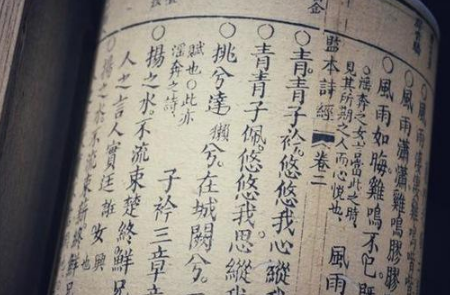 風雨
○風雨瀟瀟雞鳴膠膠
○風雨如晦雞鳴不已既
○淫奔之女言當此之時
見其所期之人而心悅也
風雨
監本詩經 卷二
○青青子衿悠悠我心縱我
○青青子佩悠悠我思縱我
○挑兮達獺兮在城闕兮
賦也○此亦
淫奔之詩
子衿三章章
○揚之水不流束楚終鮮兄
人之言人實廷誑女興也
○揚之水不流束薪終鮮兄